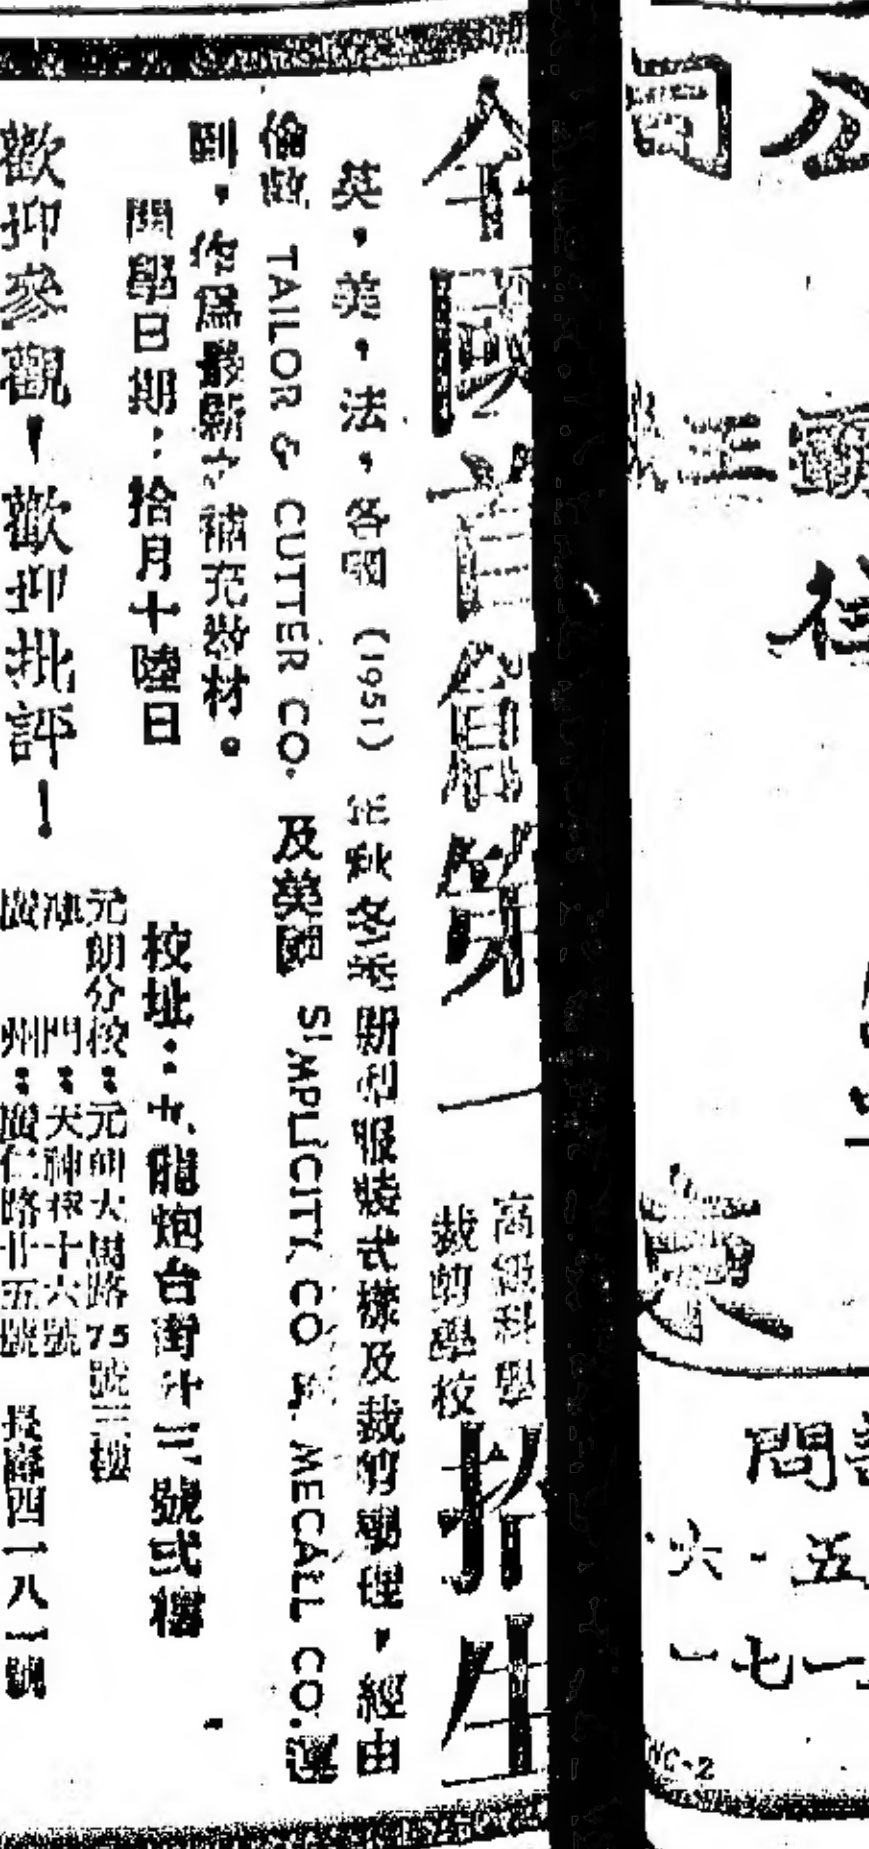 公司
三
往
東
問
六-五
一七一
WC-2
全國首倡第一
高級科學
裁剪學校
招生
英,美,法,各國(1951)年秋冬季新型服裝式樣及裁剪學理,經由
倫敦 TAILOR & CUTTER CO. 及美國 SIMPLICITY CO 與 MECALL CO. 運
到,作爲最新之補充教材。
開學日期:拾月十陸日
校址:九龍炮台街卅三號弍樓
元朗分校:元朗大馬路75號三樓
澳門:天神巷十六號
廣州:廣仁路廿五號 長壽四一八一號
歡抑參觀,歡抑批評!